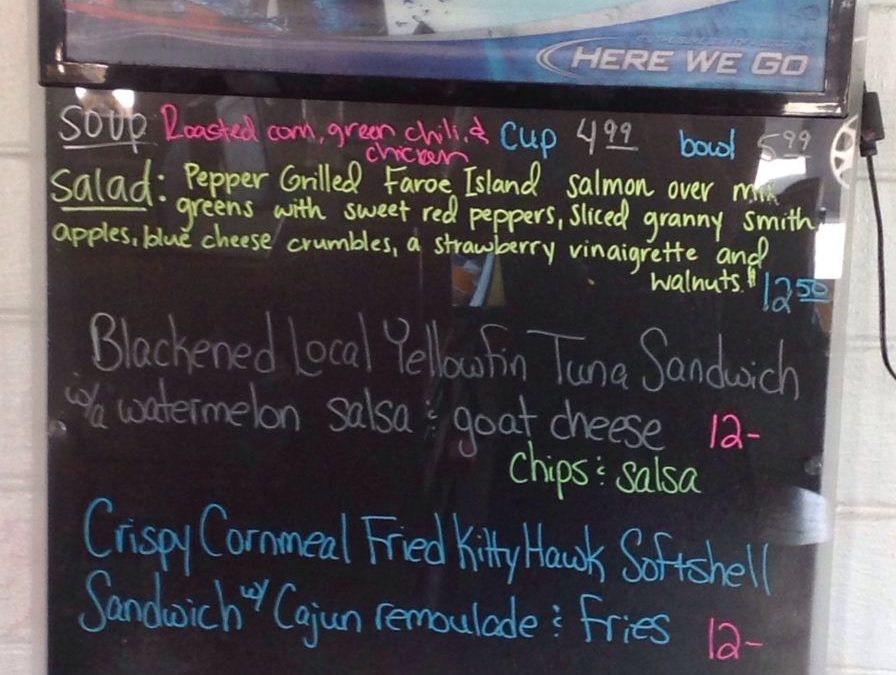 HERE WE GO
Soup Roasted corn, green chili, & cup 4.99 bowl 5.99
chicken
Salad: Pepper Grilled Faroe Island salmon over mix
greens with sweet red peppers, sliced granny smith
apples, blue cheese crumbles, a strawberry vinaigrette and
walnuts. $12.50
Blackened Local Yellowfin Tuna Sandwich
w/a watermelon salsa & goat cheese 12-
chips & salsa
Crispy Cornmeal Fried Kitty Hawk Softshell
Sandwich w/ Cajun remoulade & Fries 12-